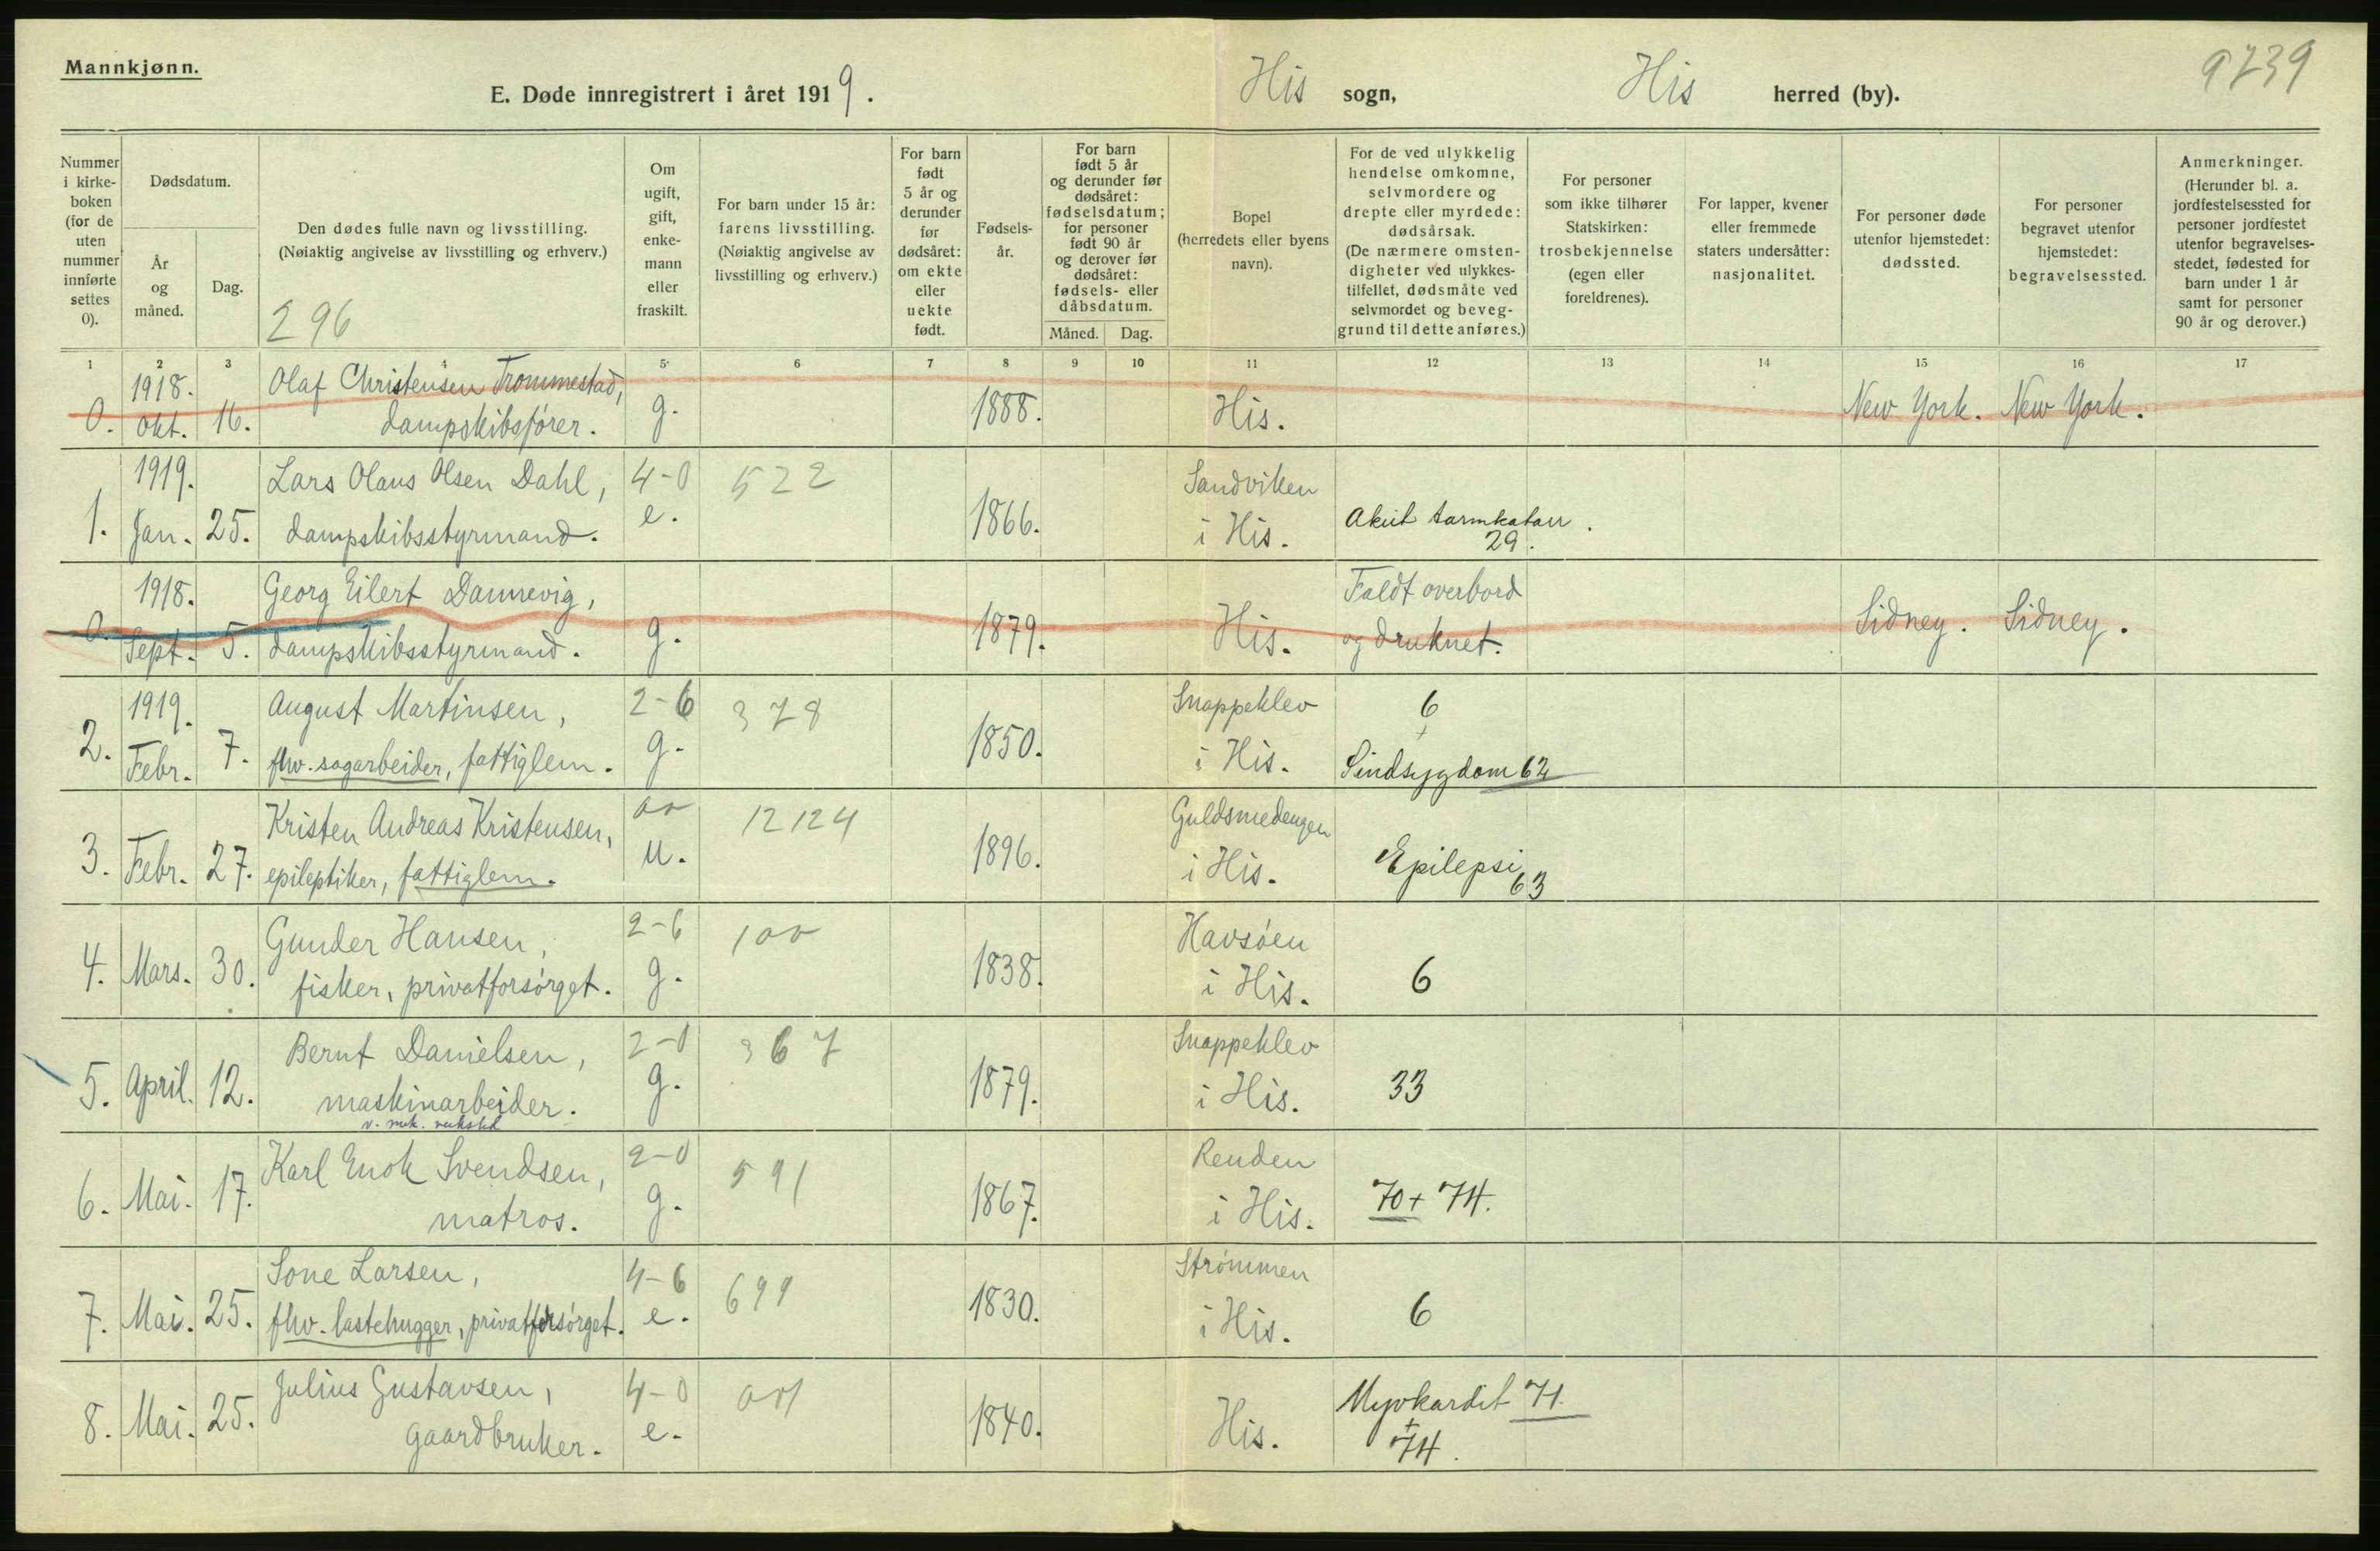 Mannkjønn.
E. Døde innregistrert i året 1919.
His sogn,
His herred (by).
9739
Nummer
i kirke-
boken
(for de
uten
nummer
innførte
settes
0).
Dødsdatum.
År
og
måned.
Dag.
Den dødes fulle navn og livsstilling.
(Nøiaktig angivelse av livsstilling og erhverv.)
296
Om
ugift,
gift,
enke-
mann
eller
fraskilt.
For barn under 15 år:
farens livsstilling.
(Nøiaktig angivelse av
livsstilling og erhverv.)
For barn
født
5 år og
derunder
før
dødsåret:
om ekte
eller
uekte
født.
Fødsels-
år.
For barn
født 5 år
og derunder før
dødsåret:
fødselsdatum;
for personer
født 90 år
og derover før
dødsåret:
fødsels- eller
dåbsdatum.
Måned. Dag.
Bopel
(herredets eller byens
navn).
For de ved ulykkelig
hendelse omkomne,
selvmordere og
drepte eller myrdede:
dødsårsak.
(De nærmere omsten-
digheter ved ulykkes-
tilfellet, dødsmåte ved
selvmordet og beveg-
grund til dette anføres.)
For personer
som ikke tilhører
Statskirken:
trosbekjennelse
(egen eller
foreldrenes).
For lapper, kvener
eller fremmede
staters undersåtter:
nasjonalitet.
For personer døde
utenfor hjemstedet:
dødssted.
For personer
begravet utenfor
hjemstedet:
begravelsessted.
Anmerkninger.
(Herunder bl. a.
jordfestelsessted for
personer jordfestet
utenfor begravelses-
stedet, fødested for
barn under 1 år
samt for personer
90 år og derover.)
1 2 3 4 5 6 7 8 9 10 11 12 13 14 15 16 17
1918. Olaf Christensen Trommestad,
0. Okt. 16. dampskibsfører. g. 1888. His. New York. New York.
1919. Lars Olaus Olsen Dahl, 4-0 522 Sandviken
1. Jan. 25. dampskibsstyrmand. e. 1866. i His. Akut tarmkatarr.
29.
1918. Georg Eilert Dannevig, Faldt overbord
0. Sept. 5. dampskibsstyrmand. g. 1879. His. og druknet. Sidney. Sidney.
1919. August Martinsen, 2-6 378 Snappeklev 6
+
2. Febr. 7. fhv. sagarbeider, fattiglem. g. 1850. i His. Sindsygdom 62
Kristen Andreas Kristensen, 12124 Guldsmedengen
3. Febr. 27. epileptiker, fattiglem. u. 1896. i His. Epilepsi 63
Gunder Hansen, 2-6 Havsøen
4. Mars. 30. fisker, privatforsørget. g. 1838. i His. 6
Bernt Danielsen, 2-0 367 Snappeklev
5. April. 12. maskinarbeider. g. 1879. i His. 33
v. mek. verksted
Karl Enok Svendsen, 2-0 591 Renden
6. Mai. 17. matros. g. 1867. i His. 70 + 74.
Sone Larsen, 4-6 699 Strømmen
7. Mai. 25. fhv. lastehugger, privatforsørget. e. 1830. i His. 6
Julius Gustavsen, 4-0 Myokardit 71.
+
8. Mai. 25. gaardbruker. e. 1840. His. 74.